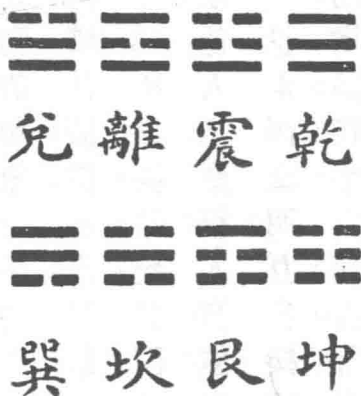 兌 離 震 乾
巽 坎 艮 坤